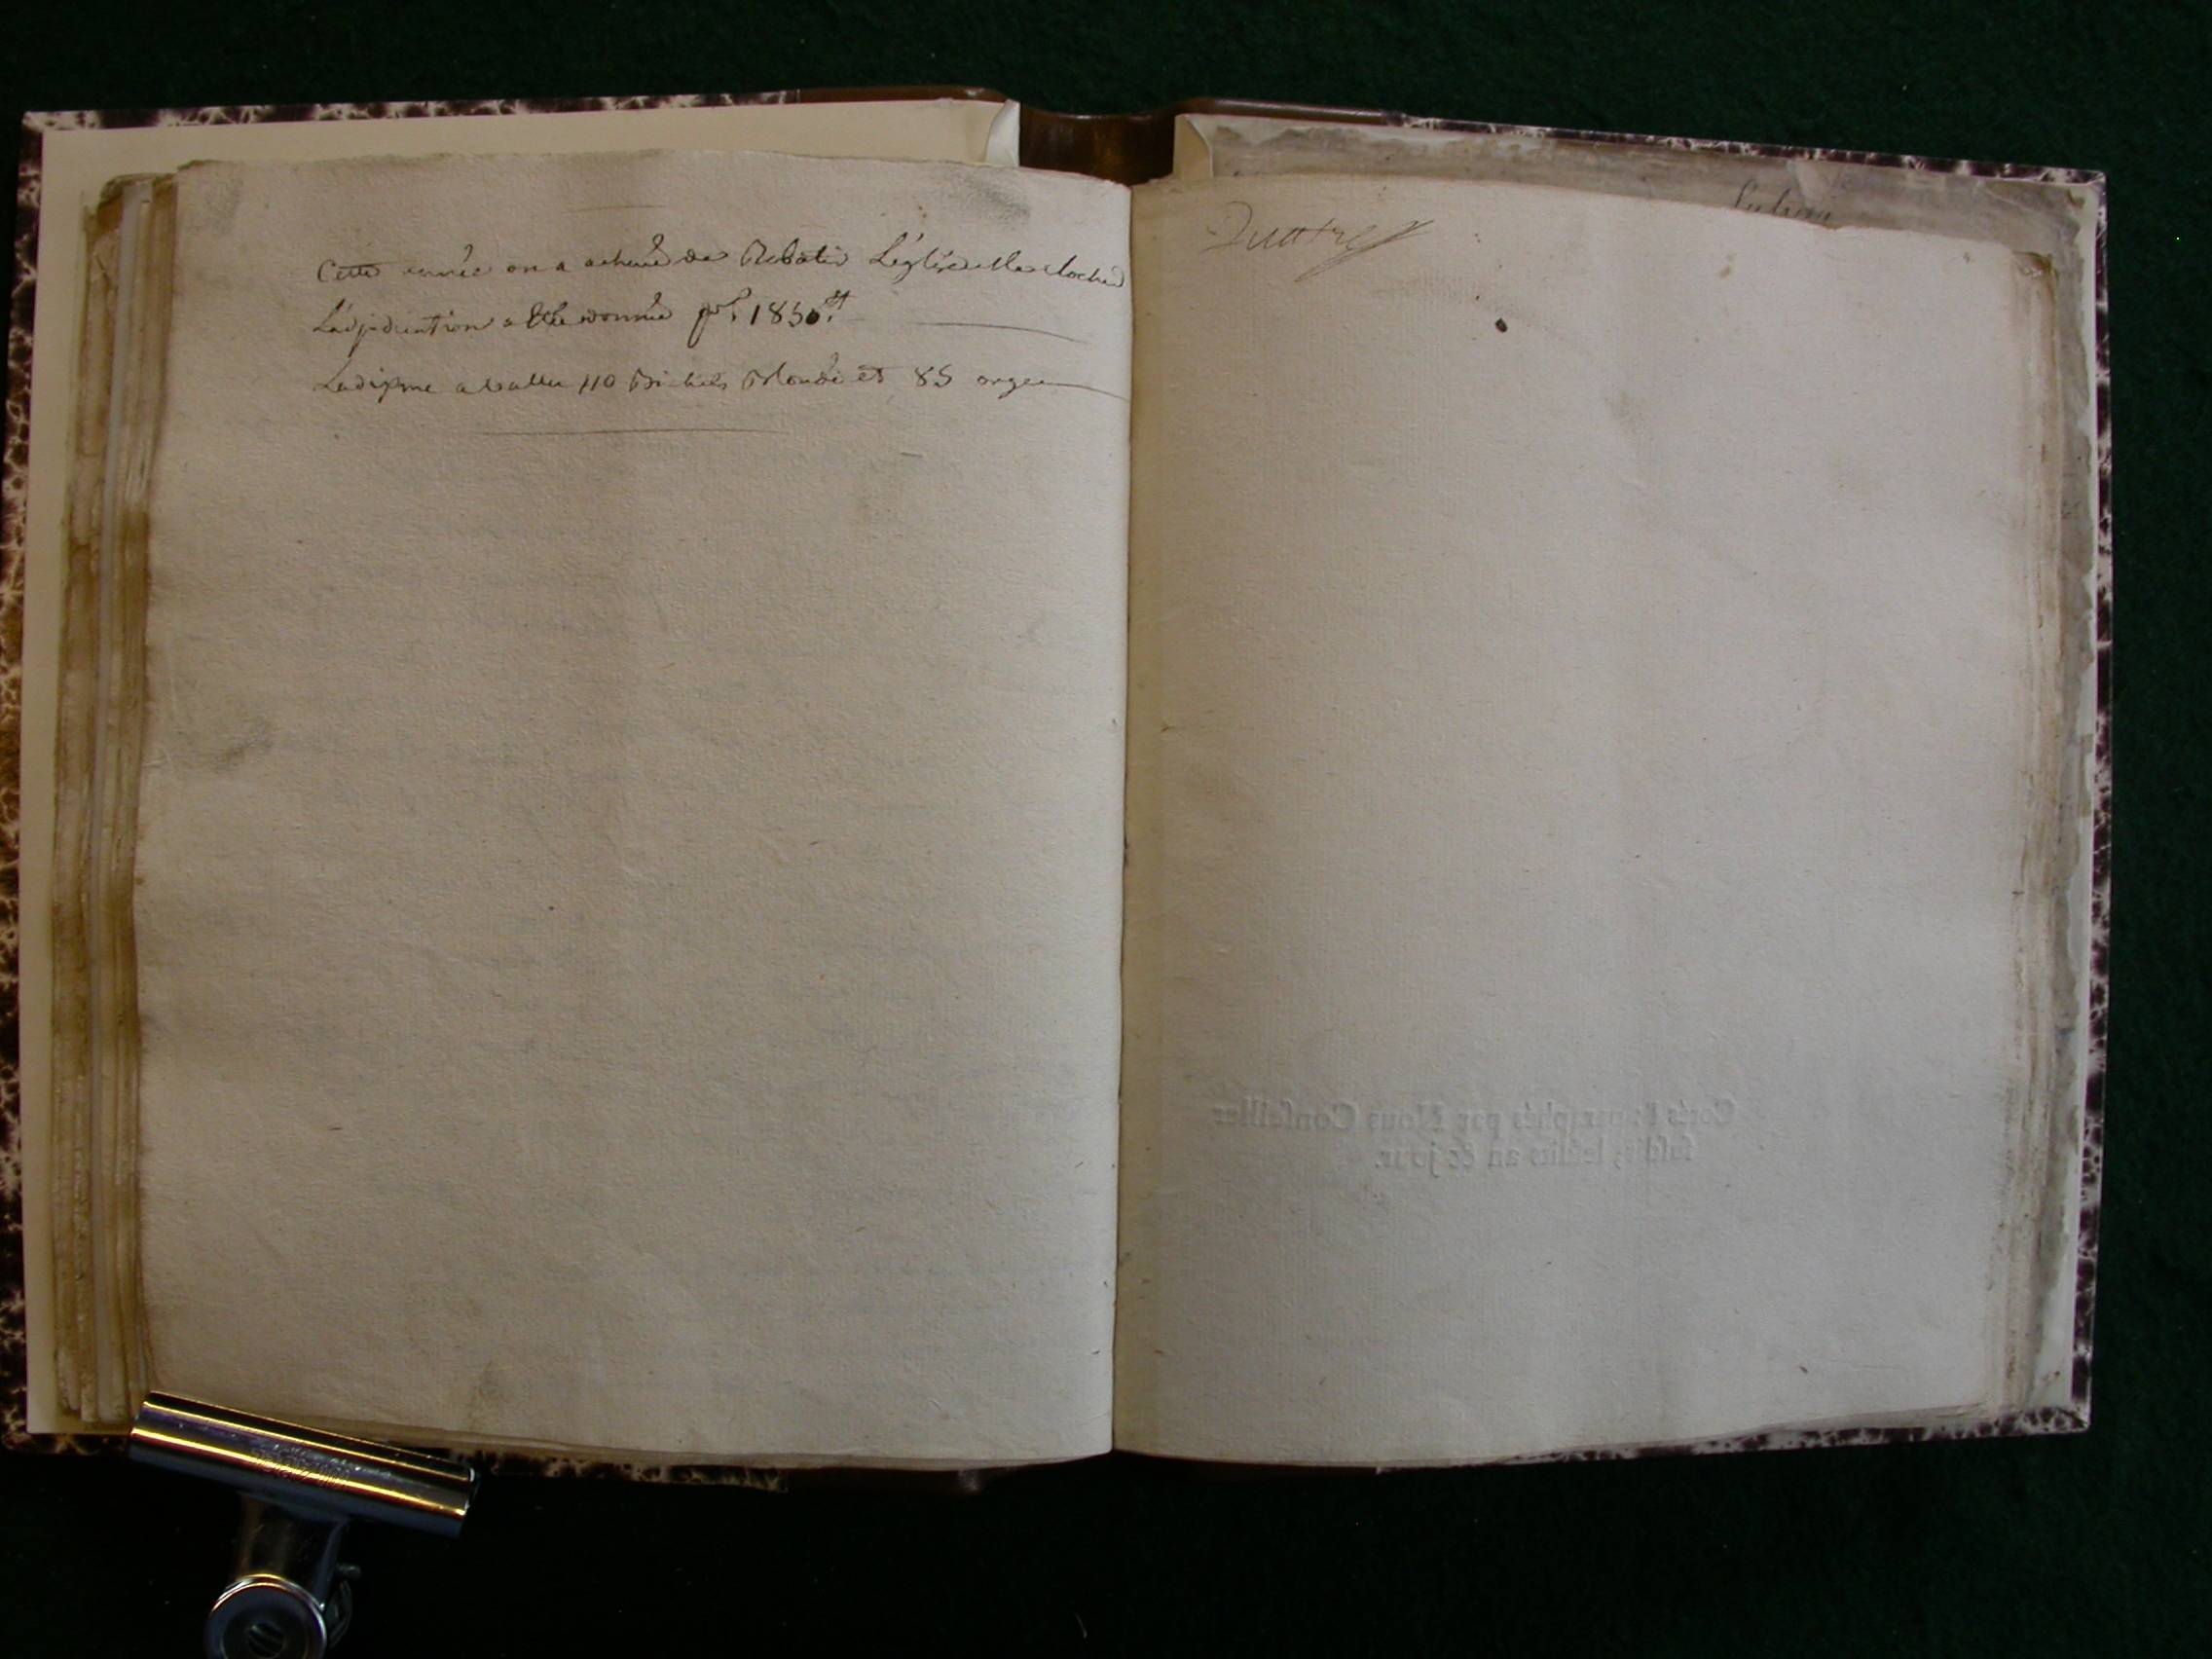 Cette année on a achevé de Rebatir L'église et le clocher
L'adjudication a été donnée pr. 1850tt
La dixme a vallu 110 Bichets Blondé et 85 orge
Cotés & paraphés par Nous Conseiller
susdit, lesdits an & jour.